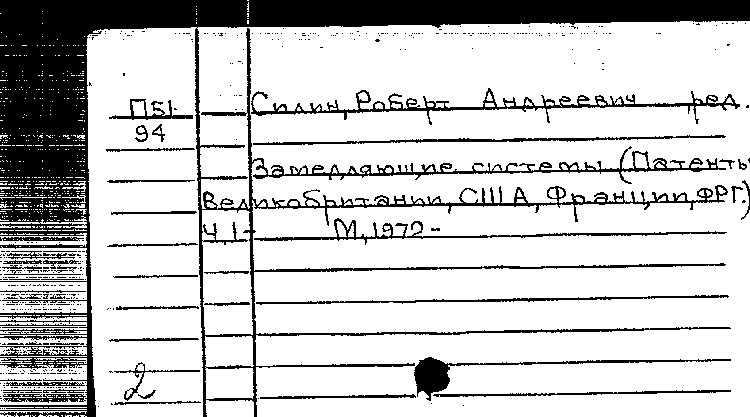 П51 Силин, Роберт Андреевич ред.
94
Замедляющие системы (Патенты
Великобритании, США, Франции, ФРГ.)
Ч.1- М., 1972-
2